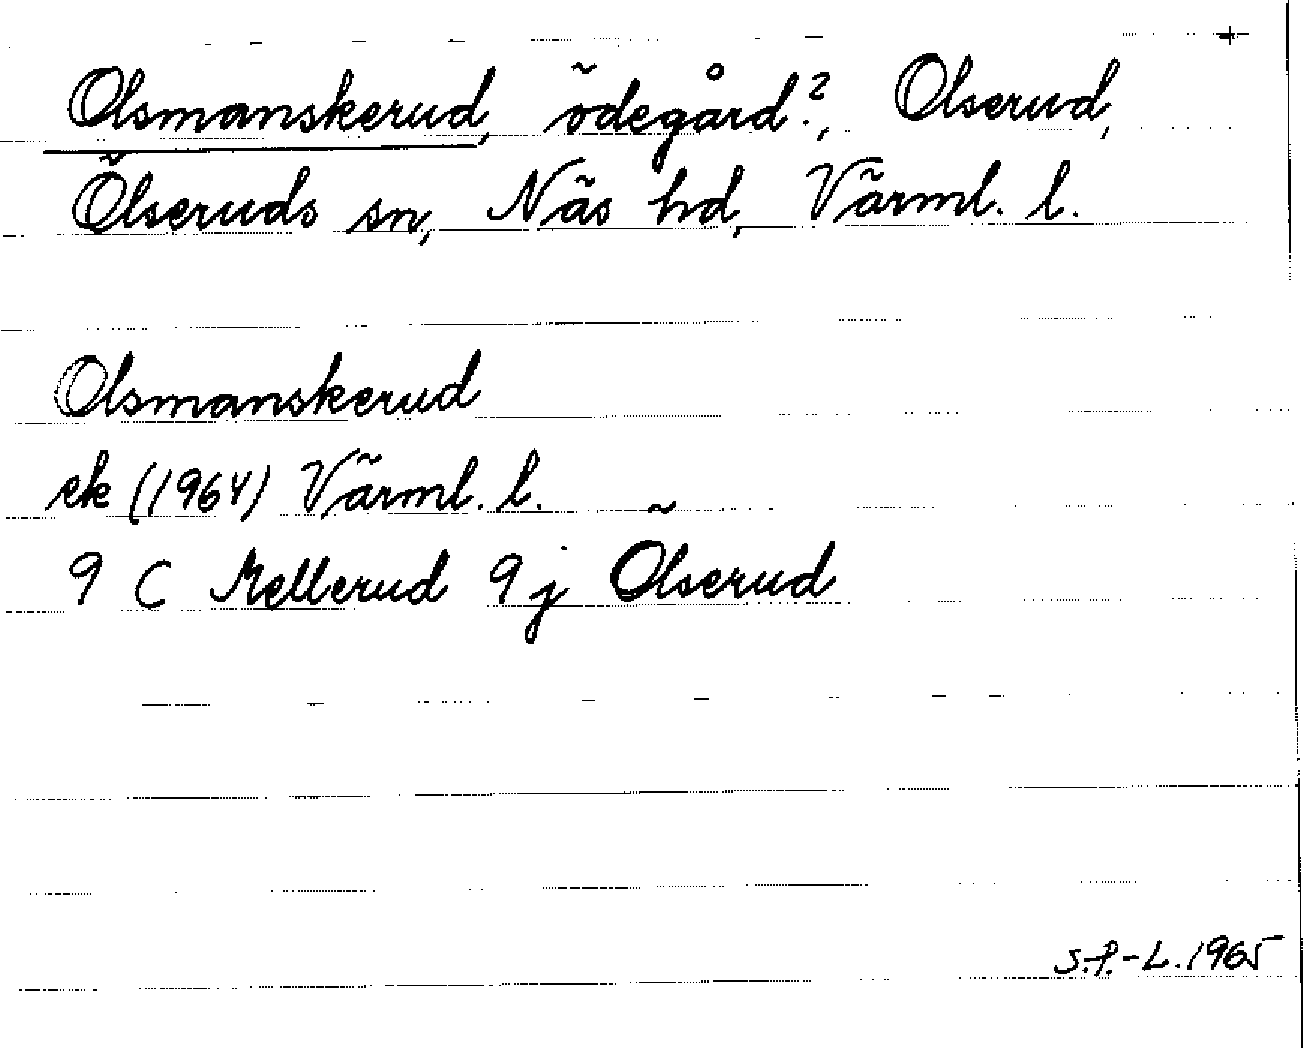 +
Olsmanskerud, ödegård?, Olserud,
Ölseruds sn, Näs hd, Värml. l.
Olsmanskerud
ek (1964) Värml. l.
9 C Mellerud 9 j Ölserud
S.F.-L. 1965